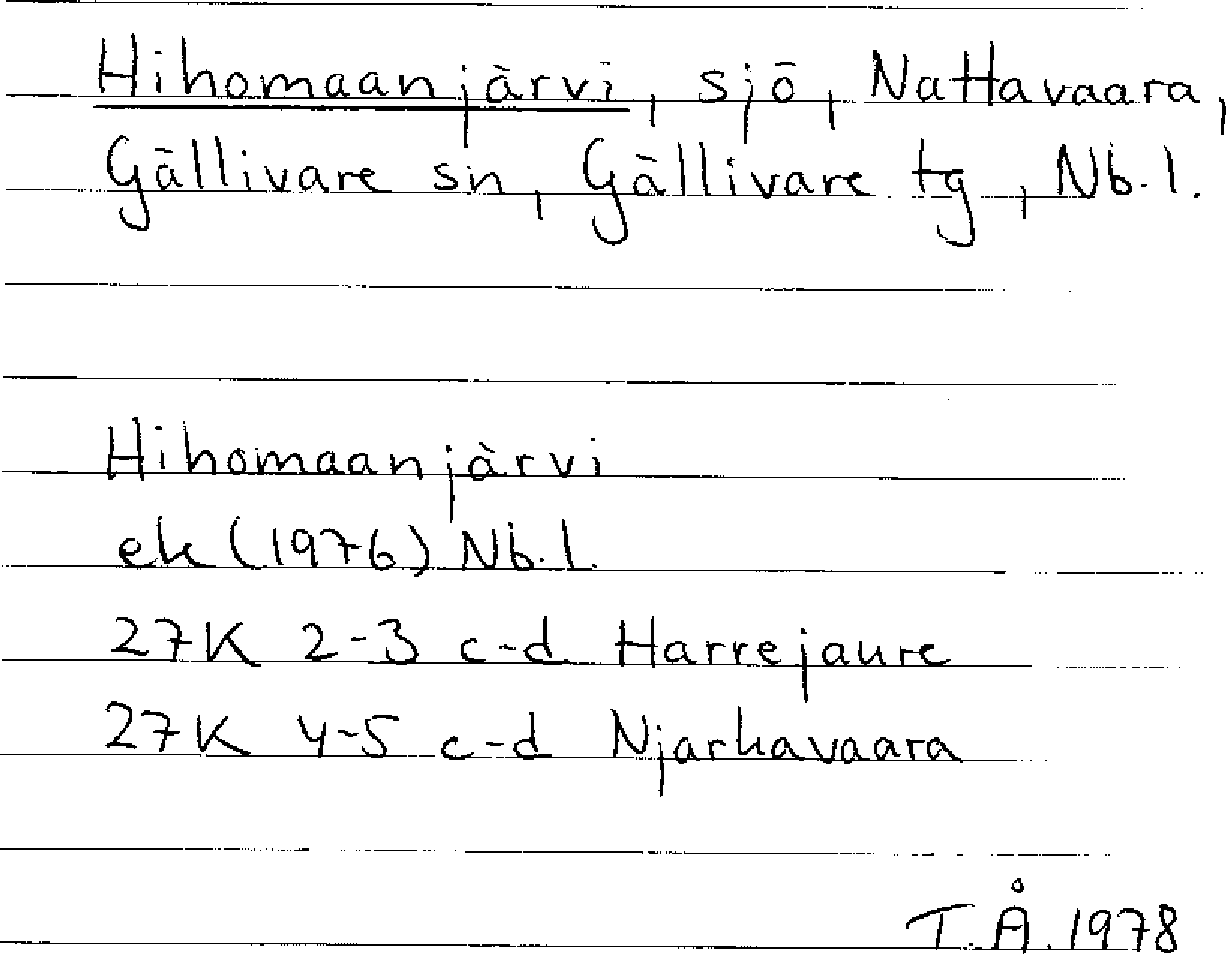 Hihomaanjärvi, sjö, Nattavaara,
Gällivare sn, Gällivare tg, Nb. l.
Hihomaanjärvi
ek (1976) Nb. l.
27K 2-3 c-d Harrejaure
27K 4-5 c-d Njarkavaara
T.Å. 1978